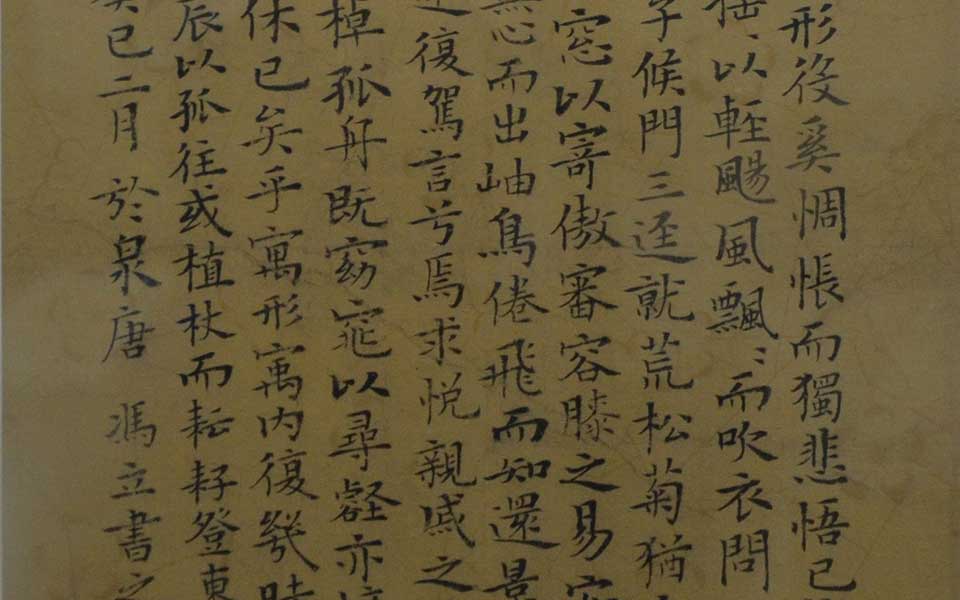 形役奚惆悵而獨悲悟已
搖〻以輕颺風飄〻而吹衣問
子候門三逕就荒松菊猶
窓以寄傲審容膝之易安
無心而出岫鳥倦飛而知還景
復駕言兮焉求悦親戚之
棹孤舟既窈窕以尋壑亦
休已矣乎寓形寓内復幾時
辰以孤往或植杖而耘耔登東
癸巳二月於泉唐 馮立書之